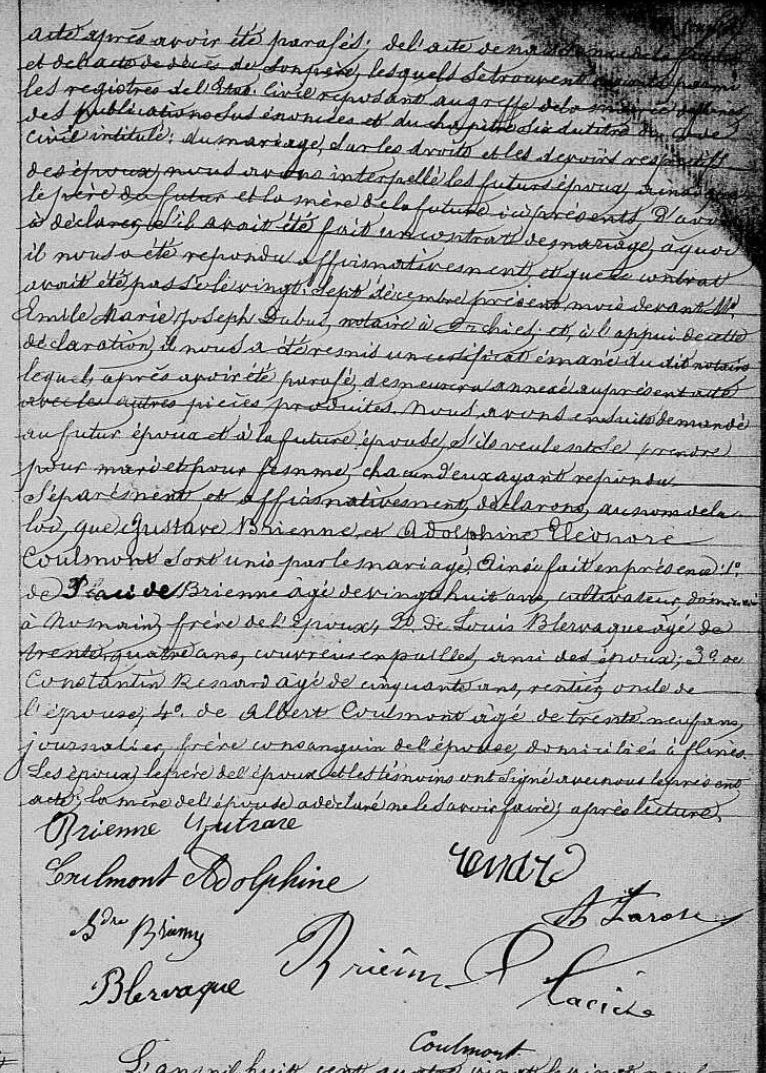 acte après avoir été parafés; de l'acte de naissance de la future
et de l'acte de décès de son père, lesquels se trouvent inscrits parmi
les registres de l'État civil reposant au greffe de la mairie
des publications sus énoncées et du chapitre six du titre du Code
civil intitulé: du mariage, sur les droits et les devoirs respectifs
des époux, nous avons interpellé les futurs époux, ainsi que
le père du futur et la mère de la future ici présents, d'avoir
à déclarer s'il avait été fait un contrat de mariage, à quoi
il nous a été repondu affirmativement, et que ce contrat
avait été passé le vingt-sept décembre présent mois devant Mr.
Emile Marie Joseph Dubus, notaire à Orchies; et, à l'appui de cette
déclaration, il nous a été remis un certificat émané du dit notaire
lequel, après avoir été parafé, demeurera annexé au présent acte
avec les autres pièces produites. Nous avons ensuite demandé
au futur époux et à la future épouse, s'ils veulent se prendre
pour mari et pour femme, chacun d'eux ayant repondu
séparément et affirmativement, déclarons, au nom de la
loi, que Gustave Brienne et Adolphine Eléonore
Coulmont sont unis par le mariage. Ainsi fait en présence: 1º
de Brienne âgé de vingt huit ans, cultivateur, domicilié
à Nomain, frère de l'époux, 2º de Louis Blervaque âgé de
trente quatre ans, couvreur en pailles, ami des époux; 3º de
Constantin Renard âgé de cinquante ans, rentier, oncle de
l'épouse; 4º de Albert Coulmont âgé de trente neuf ans,
journalier, frère consanguin de l'épouse, domiciliés à flines.
Les époux, le père de l'époux et les témoins ont signé avec nous le présent
acte; la mère de l'épouse a déclaré ne le savoir faire; après lecture.
Brienne Gustave
Coulmont Adolphine
Blervaque
Brienne
Coulmont
L'an mil huit cent quatre vingt